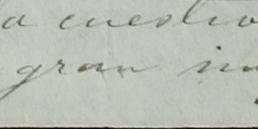 a cuestio
gran im